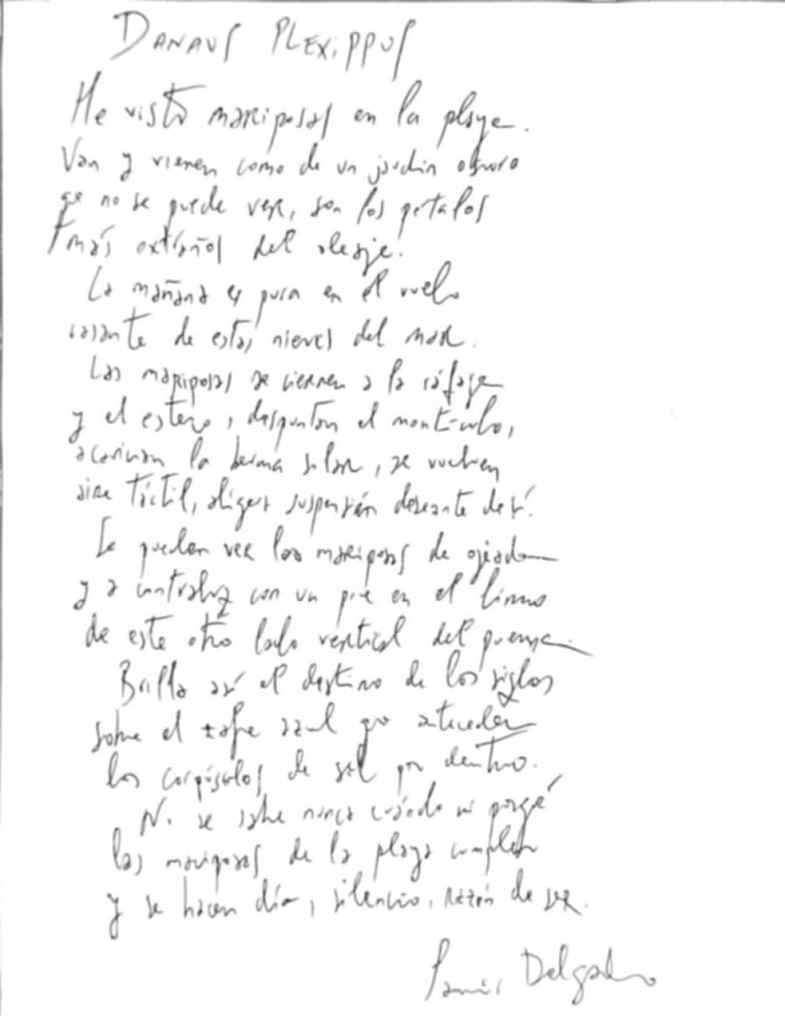 DANAUS PLEXIPPUS
He visto mariposas en la playa.
Van y vienen como de un jardín oscuro
qe no se puede ver, son los pétalos
más extraños del oleaje.
La mañana es pura en el vuelo
rasante de estas nieves del mar.
Las mariposas se ciernen a la ráfaga
y el estero, despuntan el montículo,
acarician la berma solar, se vuelven
aire táctil, aligera suspensión deseante de sí.
Se pueden ver las mariposas de ojeada
y a contraluz con un pie en el limo
de este otro lado vertical del
Brilla así el destino de los siglos
sobre el azul qe anteceden
los corpúsculos de sol por dentro.
No se sabe nunca cuándo ni porqé
las mariposas de la playa cumplen
y se hacen día, silencio, razón de ser.
Delgado